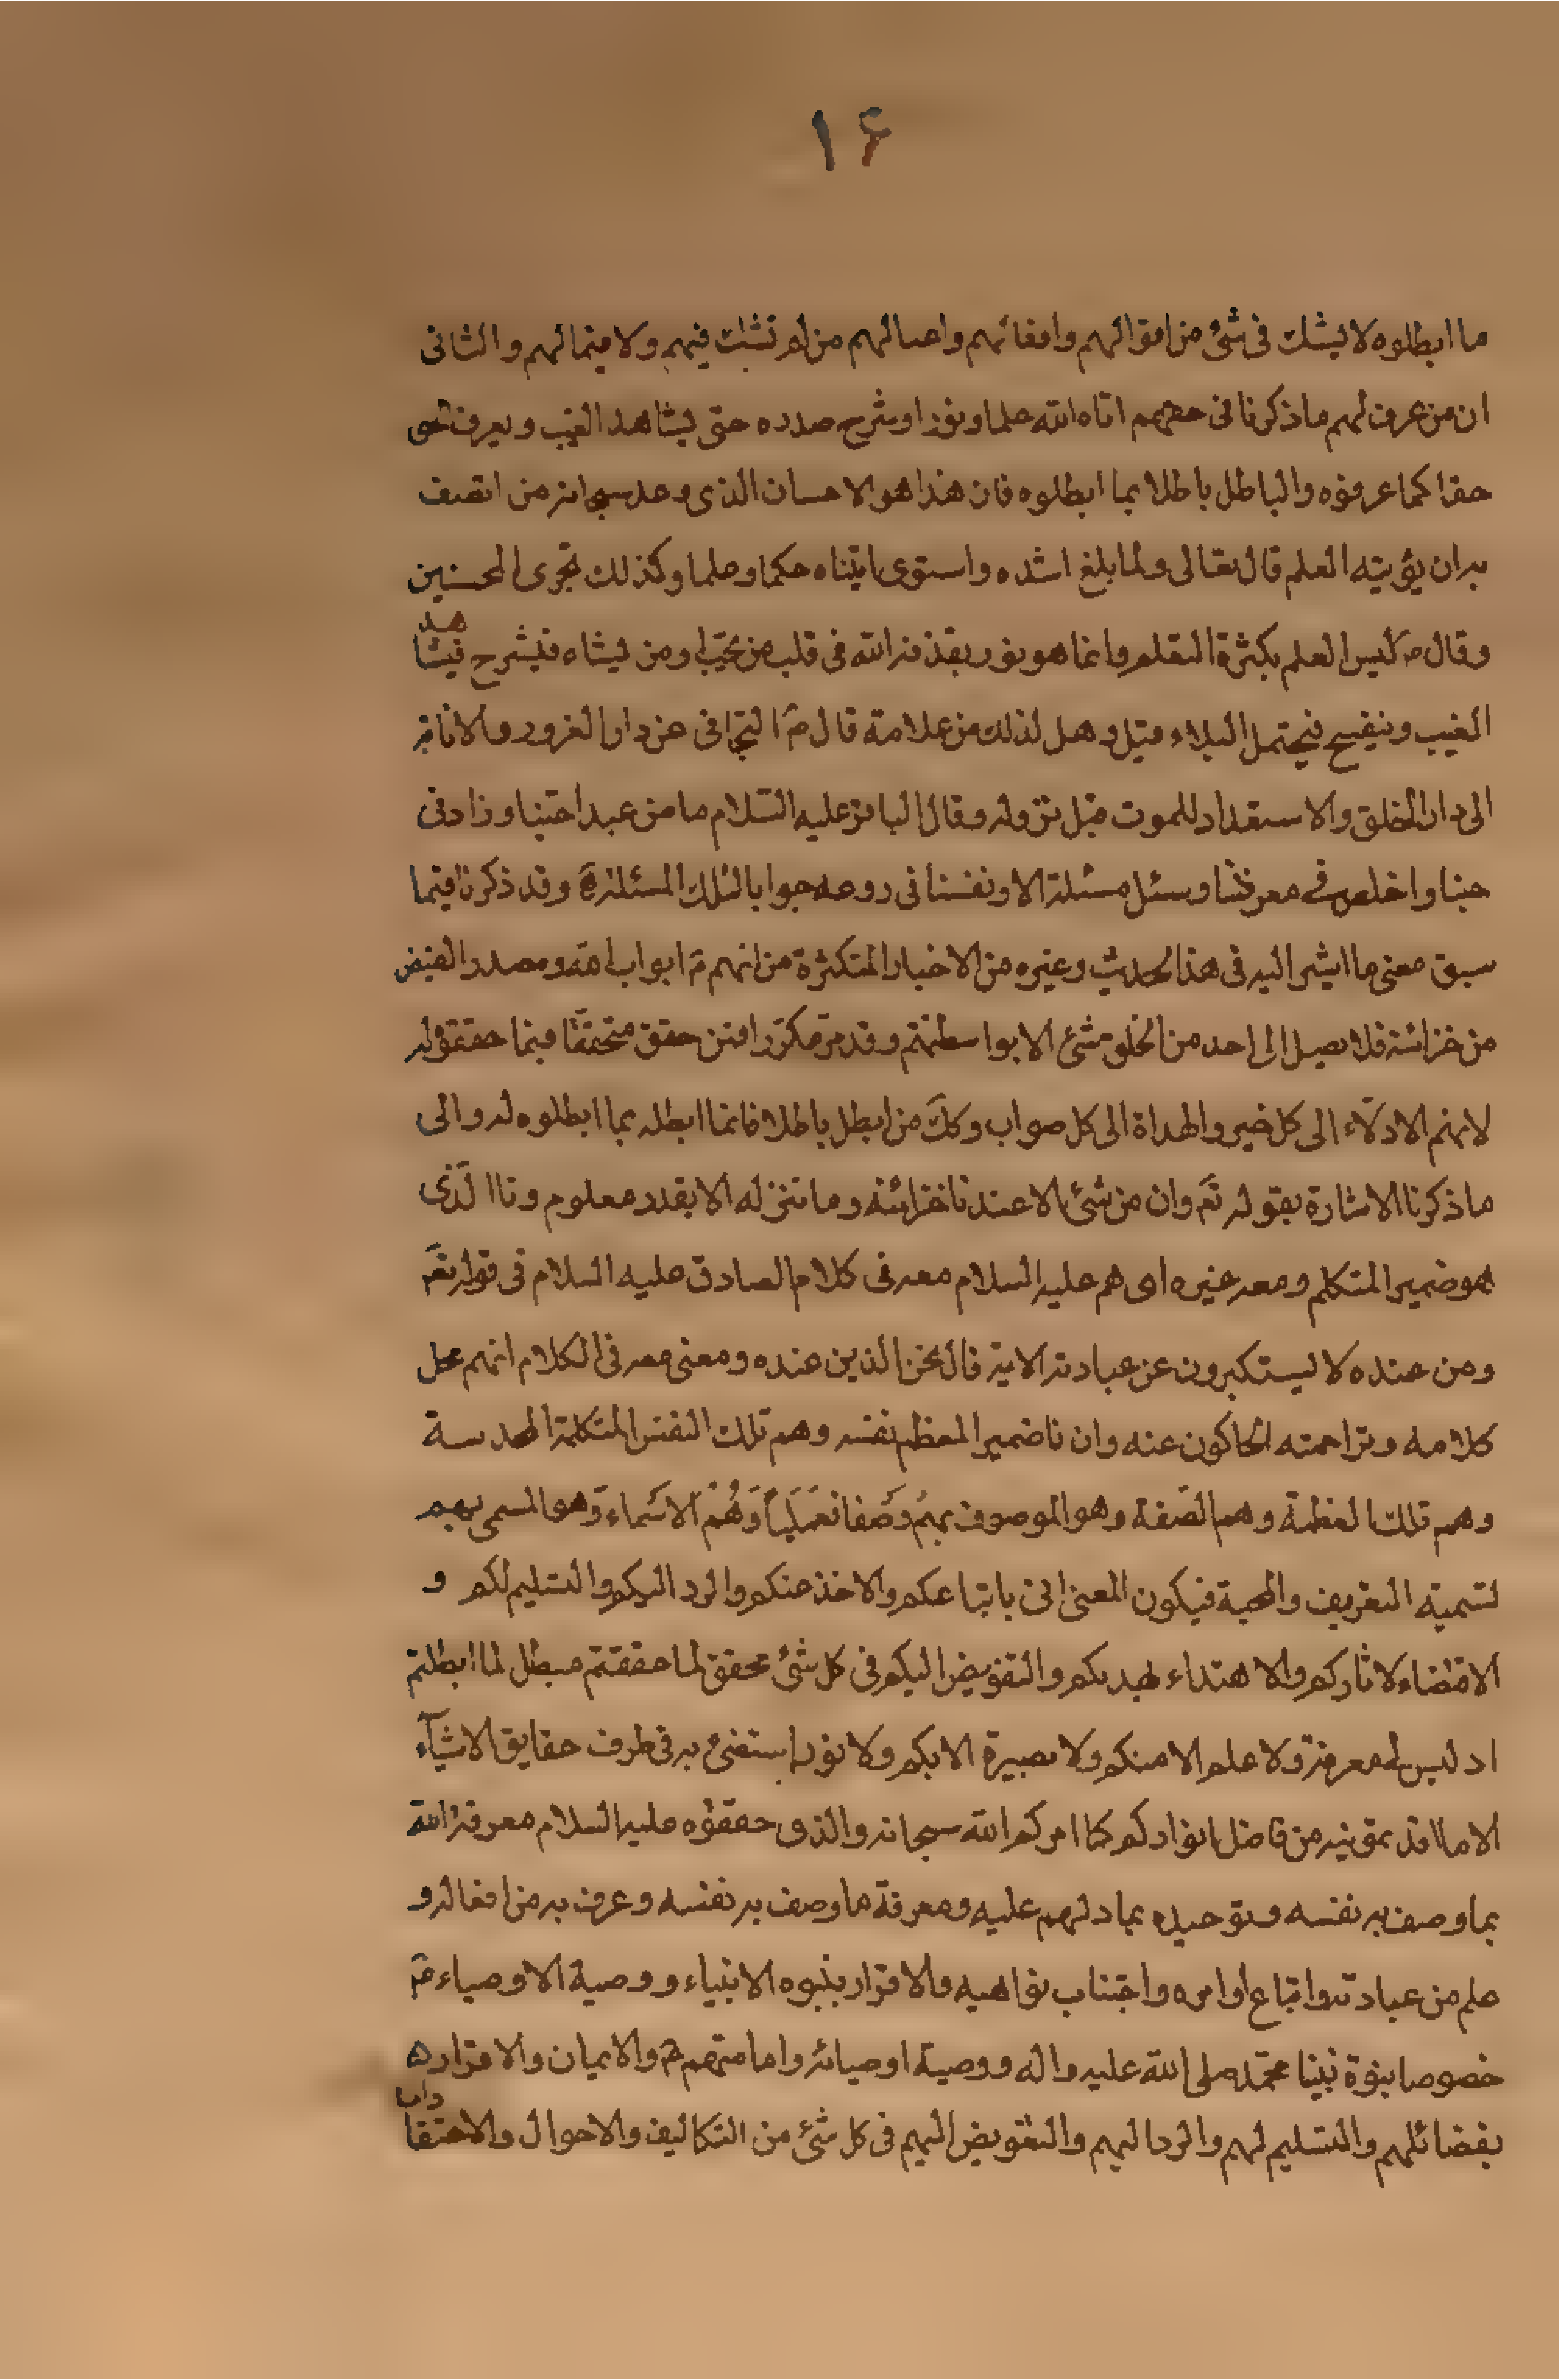 ١۶
ما ابطلوه لا يشك فى شئ من اقوالهم وافعالهم واعمالهم من لم تثبت فيهم ولا فيما لهم والثانى
ان من عرف لهم ما ذكرنا فى حقهم اتاه الله علما ونورا وشرح صدره حتى يشاهد الغيب ويعرف الحق
حقا كما عرفوه والباطل باطلا بما ابطلوه فان هذا هو الاحسان الذى وعد سبحانه من اتصف
به ان يؤتيه العلم قال تعالى ولما بلغ اشده واستوى اتيناه حكما وعلما وكذلك نجزى المحسنين
وقال ص ليس العلم بكثرة التعلم وانما هو نور يقذفه الله فى قلب من يحب او من يشاء فيشرح فيشاهد
الغيب وينفسح فيحتمل البلاء قيل وهل لذلك من علامة قال ص التجافى عن دار الغرور والانابة
الى دار الخلق والاستعداد للموت قبل نزوله وقال الباقر عليه السلام ما من عبد احبنا وزاد فى
حبنا واخلص فى معرفتنا وسئل مسئلة الا ونفثنا فى روعه جوابا لتلك المسئلة وقد ذكرنا فيما
سبق معنى ما اشير اليه فى هذا الحديث وغيره من الاخبار المتكثرة من انهم ع ابواب الله ومصدر الفيض
من خزائنه فلا يصل الى احد من الخلق شئ الا بواسطتهم وقد مر مكررا فمن حقق متحققا فبما حققوا له
لانهم الادلاء الى كل خير والهداة الى كل صواب وكك من ابطل باطلا فانما ابطله بما ابطلوه له والى
ما ذكرنا الاشارة بقوله تع وان من شئ الا عندنا خزائنه وما ننزله الا بقدر معلوم ونا الذى
هو ضمير المتكلم ومعه غيره اى هم عليه السلام معه فى كلام الصادق عليه السلام فى قوله تع
ومن عنده لا يستكبرون عن عبادته الاية قال نحن الذين عنده ومعنى معه فى الكلام انهم محل
كلامه وتراجمته الحاكون عنه وان نا ضمير المعظم نفسه وهم تلك النفس المتكلمة
وهم تلك العظمة وهم الصفة وهو الموصوف بهم وهم الاسماء وهو المسمى بهم
تسمية التعريف والمحبة فيكون المعنى انى باتباعكم والاخذ عنكم والرد اليكم والتسليم لكم و
الاقتضاء لاثاركم والاهتداء بهديكم والتفويض اليكم فى كل شئ محقق لما حققتم مبطل لما ابطلتم
اذ ليس له معرفة ولا علم الا منكم ولا بصيرة الا بكم ولا نور استضئ به فى طرف حقايق الاشياء
الا ما من فاضل انواركم كما امركم الله سبحانه والذى حققوه عليه السلام معرفة الله
بما وصف به نفسه وتوحيده بما دلهم عليه ومعرفة ما وصف به نفسه وعرف به من افعاله و
علم من عبادته واتباع اوامره واجتناب نواهيه والاقرار بنبوه الانبياء ووصية الاوصياء ع
خصوصا بنوة نبينا محمد صلى الله عليه واله ووصية اوصيائه وامامتهم ع والايمان والاقرار
بفضائلهم والتسليم لهم والرد اليهم والتفويض اليهم فى كل شئ من التكاليف والاحوال والاعتقادات